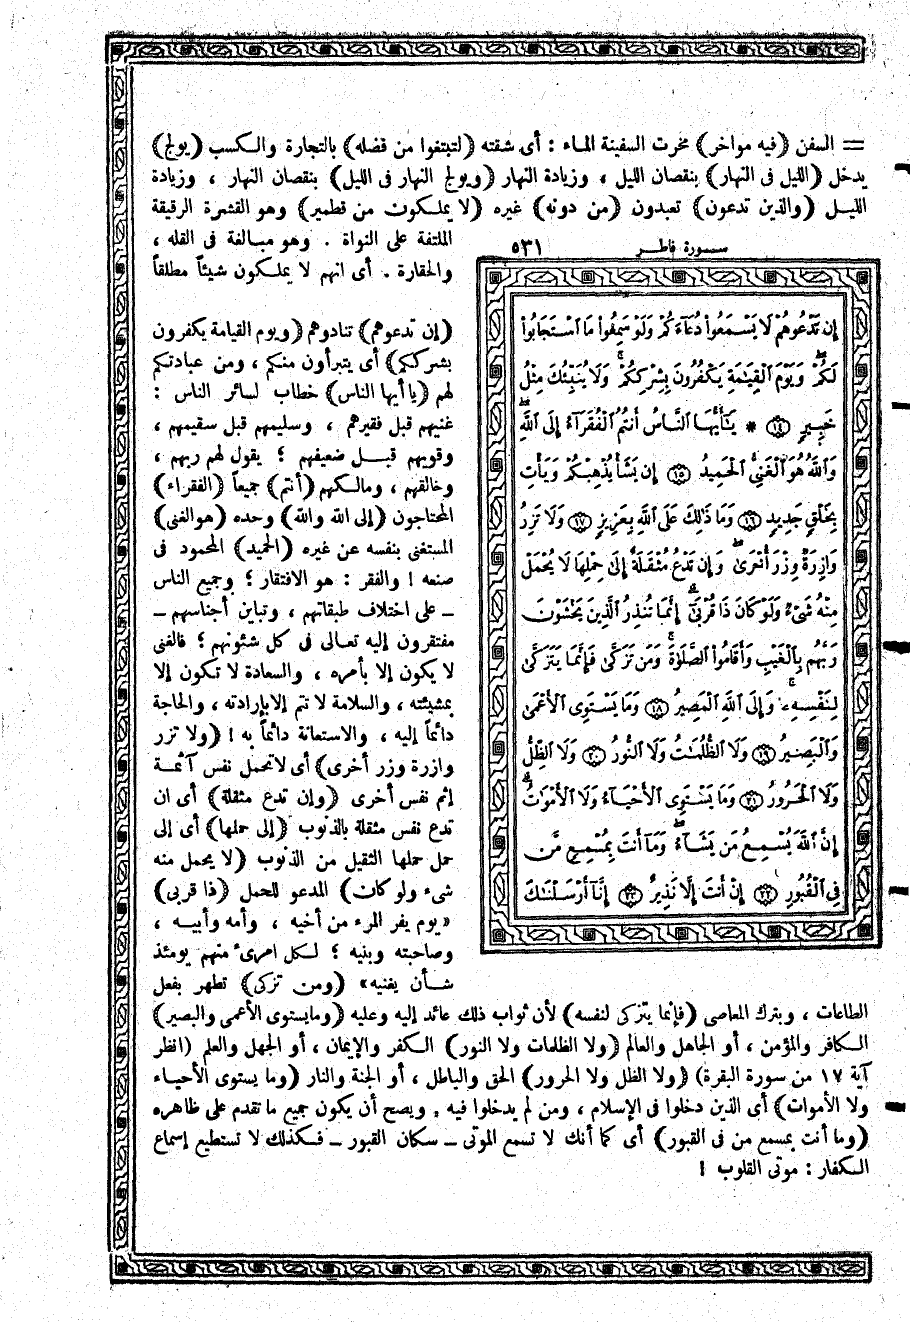 = السفن (فيه مواخر) مخرت السفينة الماء : أى شقته (لتبتغوا من فضله) بالتجارة والكسب (يولج)
يدخل (الليل فى النهار) بنقصان الليل ، وزيادة النهار (ويولج النهار فى الليل) بنقصان النهار ، وزيادة
الليل (والذين تدعون) تعبدون (من دونه) غيره (لا يملكون من قطمير) وهو القشرة الرقيقة
الملتفة على النواة . وهو مبالغة فى القله ،
والحقارة . أى انهم لا يملكون شيئاً مطلقاً
(إن تدعوهم) تنادوهم (ويوم القيامة يكفرون
بشرككم) أى يتبرأون منكم ، ومن عبادتكم
لهم (يا أيها الناس) خطاب لسائر الناس :
غنيهم قبل فقيرهم ، وسليمهم قبل سقيمهم ،
وقويهم قبل ضعيفهم ؛ يقول لهم ربهم ،
وخالقهم ، ومالكهم (أنتم) جميعاً (الفقراء)
المحتاجون (إلى الله والله) وحده (هو الغنى)
المستغنى بنفسه عن غيره (الحميد) المحمود فى
صنعه ! والفقر : هو الافتقار ؛ وجميع الناس
– على اختلاف طبقاتهم ، وتباين أجناسهم –
مفتقرون إليه تعالى فى كل شئونهم ؛ فالغنى
لا يكون إلا بأمره ، والسعادة لا تكون إلا
بمشيئته ، والسلامة لا تتم إلا بإرادته ، والحاجة
دائماً إليه ، والاستعانة دائماً به ! (ولا تزر
وازرة وزر أخرى) أى لا تحمل نفس آثمة
إثم نفس أخرى (وإن تدع مثقلة) أى ان
تدع نفس مثقلة بالذنوب (إلى حملها) أى إلى
حمل حملها الثقيل من الذنوب (لا يحمل منه
شىء ولو كان) المدعو للحمل (ذا قربى)
«يوم يفر المرء من أخيه ، وأمه وأبيه ،
وصاحبته وبنيه ؛ لكل امرىء منهم يومئذ
شأن يغنيه» (ومن تزكى) تطهر بفعل
سورة فاطر ٥٣١
إِن تَدْعُوهُمْ لَا يَسْمَعُوا۟ دُعَآءَكُمْ وَلَوْ سَمِعُوا۟ مَا ٱسْتَجَابُوا۟
لَكُمْ ۖ وَيَوْمَ ٱلْقِيَٰمَةِ يَكْفُرُونَ بِشِرْكِكُمْ ۚ وَلَا يُنَبِّئُكَ مِثْلُ
خَبِيرٍ ۝١٤ * يَٰٓأَيُّهَا ٱلنَّاسُ أَنتُمُ ٱلْفُقَرَآءُ إِلَى ٱللَّهِ ۖ
وَٱللَّهُ هُوَ ٱلْغَنِىُّ ٱلْحَمِيدُ ۝١٥ إِن يَشَأْ يُذْهِبْكُمْ وَيَأْتِ
بِخَلْقٍ جَدِيدٍ ۝١٦ وَمَا ذَٰلِكَ عَلَى ٱللَّهِ بِعَزِيزٍ ۝١٧ وَلَا تَزِرُ
وَازِرَةٌ وِزْرَ أُخْرَىٰ ۚ وَإِن تَدْعُ مُثْقَلَةٌ إِلَىٰ حِمْلِهَا لَا يُحْمَلْ
مِنْهُ شَىْءٌ وَلَوْ كَانَ ذَا قُرْبَىٰٓ ۗ إِنَّمَا تُنذِرُ ٱلَّذِينَ يَخْشَوْنَ
رَبَّهُم بِٱلْغَيْبِ وَأَقَامُوا۟ ٱلصَّلَوٰةَ ۚ وَمَن تَزَكَّىٰ فَإِنَّمَا يَتَزَكَّىٰ
لِنَفْسِهِۦ ۚ وَإِلَى ٱللَّهِ ٱلْمَصِيرُ ۝١٨ وَمَا يَسْتَوِى ٱلْأَعْمَىٰ
وَٱلْبَصِيرُ ۝١٩ وَلَا ٱلظُّلُمَٰتُ وَلَا ٱلنُّورُ ۝٢٠ وَلَا ٱلظِّلُّ
وَلَا ٱلْحَرُورُ ۝٢١ وَمَا يَسْتَوِى ٱلْأَحْيَآءُ وَلَا ٱلْأَمْوَٰتُ ۚ
إِنَّ ٱللَّهَ يُسْمِعُ مَن يَشَآءُ ۖ وَمَآ أَنتَ بِمُسْمِعٍ مَّن
فِى ٱلْقُبُورِ ۝٢٢ إِنْ أَنتَ إِلَّا نَذِيرٌ ۝٢٣ إِنَّآ أَرْسَلْنَٰكَ
الطاعات ، وبترك المعاصى (فإنما يتزكى لنفسه) لأن ثواب ذلك عائد إليه وعليه (وما يستوى الأعمى والبصير)
الكافر والمؤمن ، أو الجاهل والعالم (ولا الظلمات ولا النور) الكفر والإيمان ، أو الجهل والعلم (انظر
آية ١٧ من سورة البقرة) (ولا الظل ولا الحرور) الحق والباطل ، أو الجنة والنار (وما يستوى الأحياء
ولا الأموات) أى الذين دخلوا فى الإسلام ، ومن لم يدخلوا فيه . ويصح أن يكون جميع ما تقدم على ظاهره
(وما أنت بمسمع من فى القبور) أى كما أنك لا تسمع الموتى – سكان القبور – فكذلك لا تستطيع إسماع
الكفار : موتى القلوب !